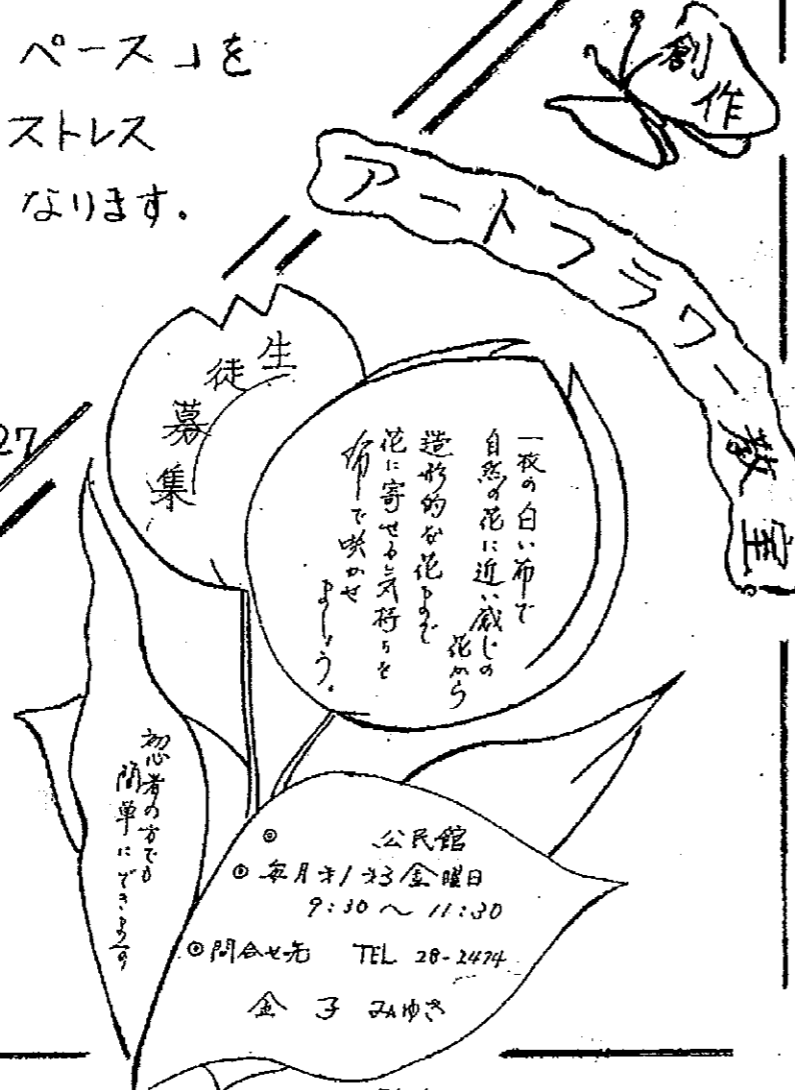 ペース」を
ストレス
なります。
27
創作
アートフラワー教室
生徒募集
一枚の白い布で
自然の花に近い感じの
花から
造形的な花まで
花に寄せる気持ちを
布で咲かせ
ましょう。
初心者の方でも
簡単にできます
◎ 公民館
◎ 毎月オ1オ3金曜日
9:30〜11:30
◎問合せ先 TEL 28-2474
金子みゆき